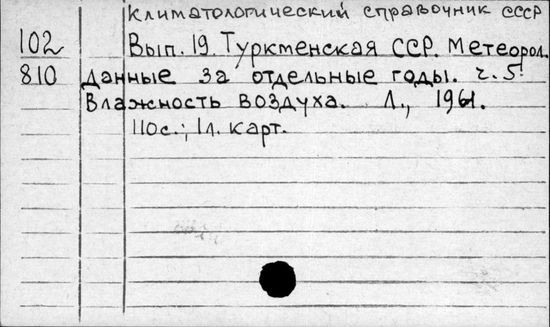 Климатологический справочник СССР
102 Вып. 19. Туркменская ССР. Метеорол.
810 данные за отдельные годы. ч. 5.
Влажность воздуха. Л., 1961.
110с.; 1л. карт.